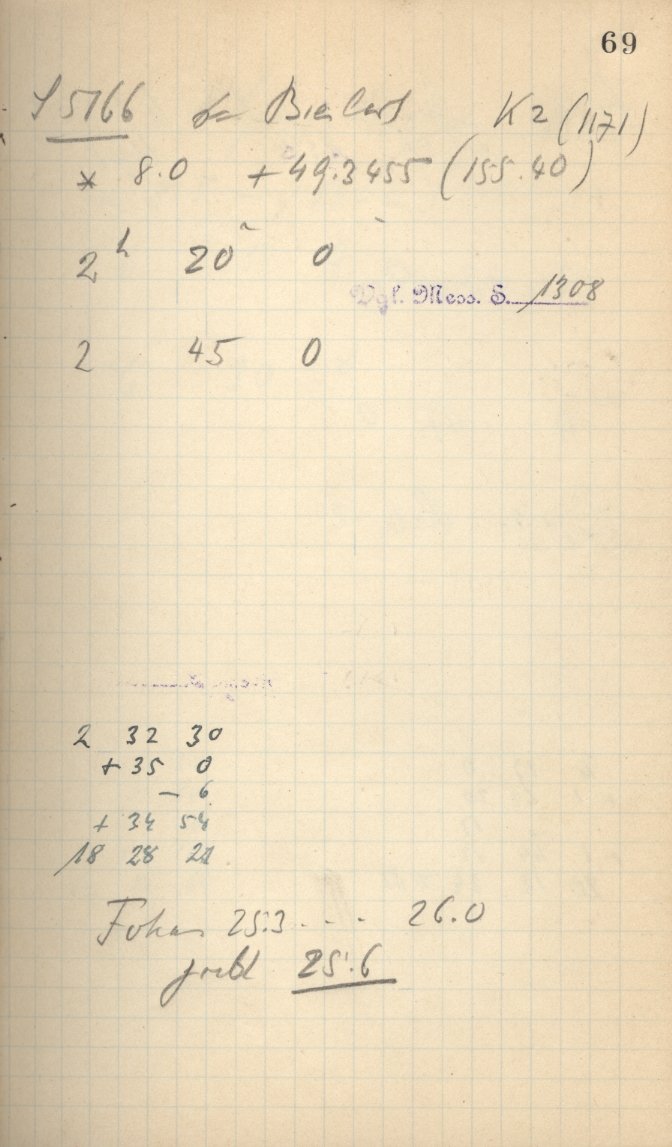 69
S 5166 K2 (1171)
* 8.0 + 49.3455 (155.40)
2h 20 0
Vgl. Mess. S. 1308
2 45 0
2 32 30
+ 35 0
- 6
+ 34 54
18 28 21
Fokus 25.3 . . . 26.0
25.6